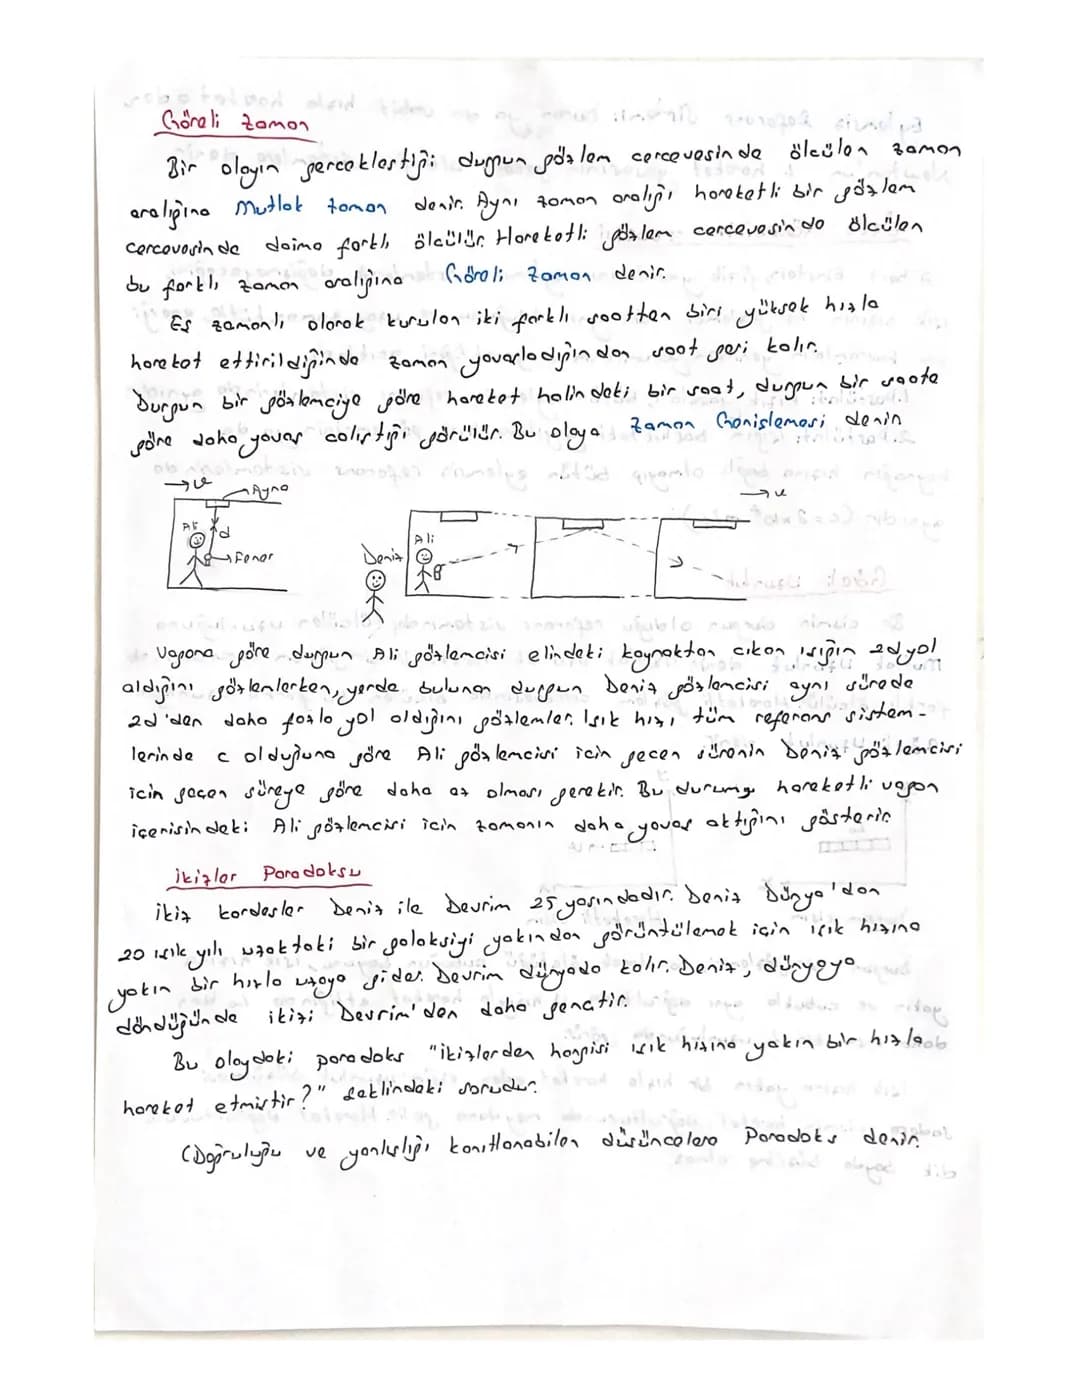 Göreli Zaman
Bir olayın gerçekleştiği durgun gözlem çerçevesinde ölçülen zaman
aralığına Mutlak zaman denir. Aynı zaman aralığı hareketli bir gözlem
çerçevesinde daima farklı ölçülür. Hareketli gözlem çerçevesinde ölçülen
bu farklı zaman aralığına Göreli Zaman denir.
Eş zamanlı olarak kurulan iki farklı saatten biri yüksek hızla
hareket ettirildiğinde zaman yavaşladığından saat geri kalır.
Durgun bir gözlemciye göre hareket halindeki bir saat, durgun bir saate
göre daha yavaş çalıştığı görülür. Bu olaya Zaman Genişlemesi denir.
→v Ayna →v
Ali d Fener Deniz Ali
Vagona göre durgun Ali gözlemcisi elindeki kaynaktan çıkan ışığın 2d yol
aldığını gözlemlerken, yerde bulunan durgun Deniz gözlemcisi aynı sürede
2d'den daha fazla yol aldığını gözlemler. Işık hızı tüm referans sistem-
lerinde c olduğuna göre Ali gözlemcisi için geçen sürenin Deniz gözlemcisi
için geçen süreye göre daha az olması gerekir. Bu durum, hareketli vagon
içerisindeki Ali gözlemcisi için zamanın daha yavaş aktığını gösterir.
İkizler Paradoksu
İkiz kardeşler Deniz ile Devrim 25 yaşındadır. Deniz Dünya'dan
20 ışık yılı uzaktaki bir galaksiyi yakından görüntülemek için ışık hızına
yakın bir hızla uzaya gider. Devrim dünyada kalır. Deniz, dünyaya
döndüğünde ikizi Devrim'den daha gençtir.
Bu olaydaki paradoks "ikizlerden hangisi ışık hızına yakın bir hızla
hareket etmiştir?" şeklindeki sorudur.
(Doğruluğu ve yanlışlığı kanıtlanabilen düşüncelere Paradoks denir.